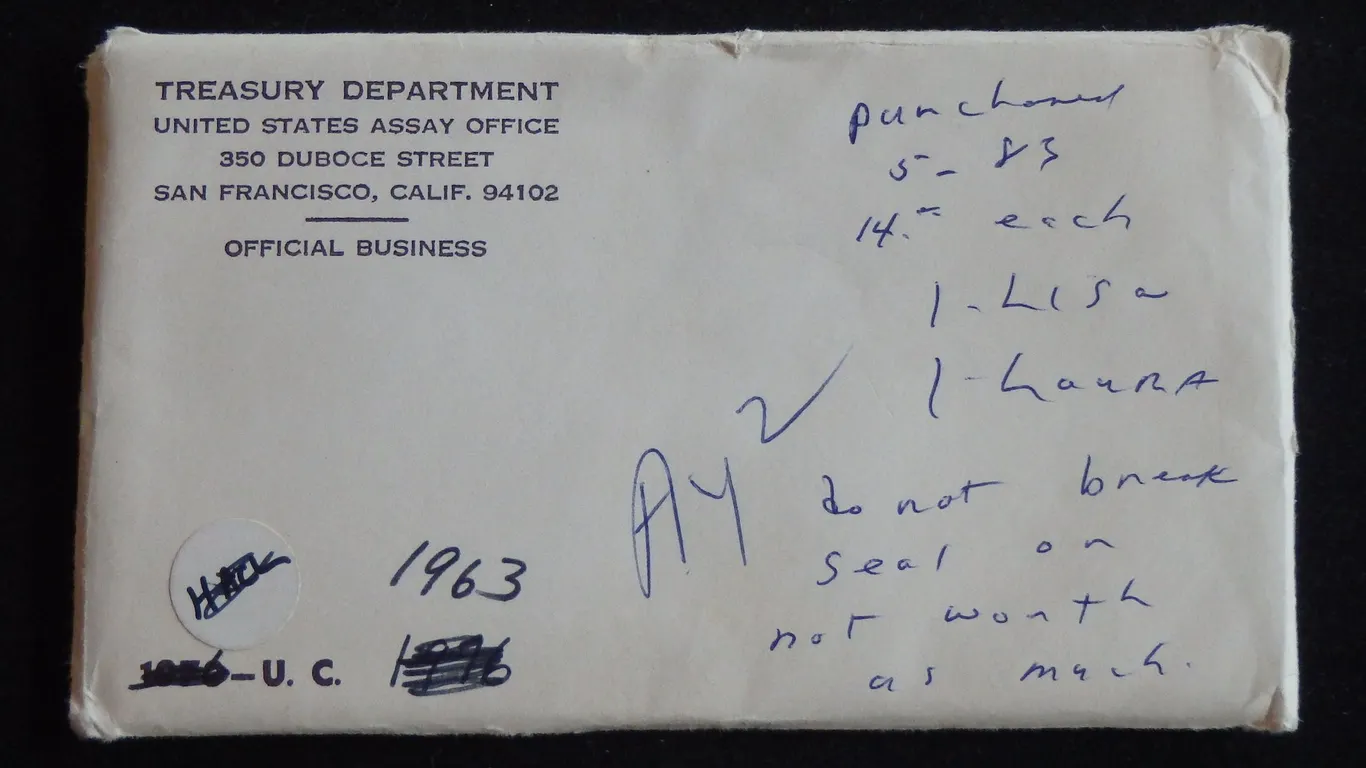 TREASURY DEPARTMENT
UNITED STATES ASSAY OFFICE
350 DUBOCE STREET
SAN FRANCISCO, CALIF. 94102
OFFICIAL BUSINESS
purchased
5-83
14.00 each
1-LISa
1-LauRA
do not break
seal or
not worth
as much.
AY
2
1963
-U. C.